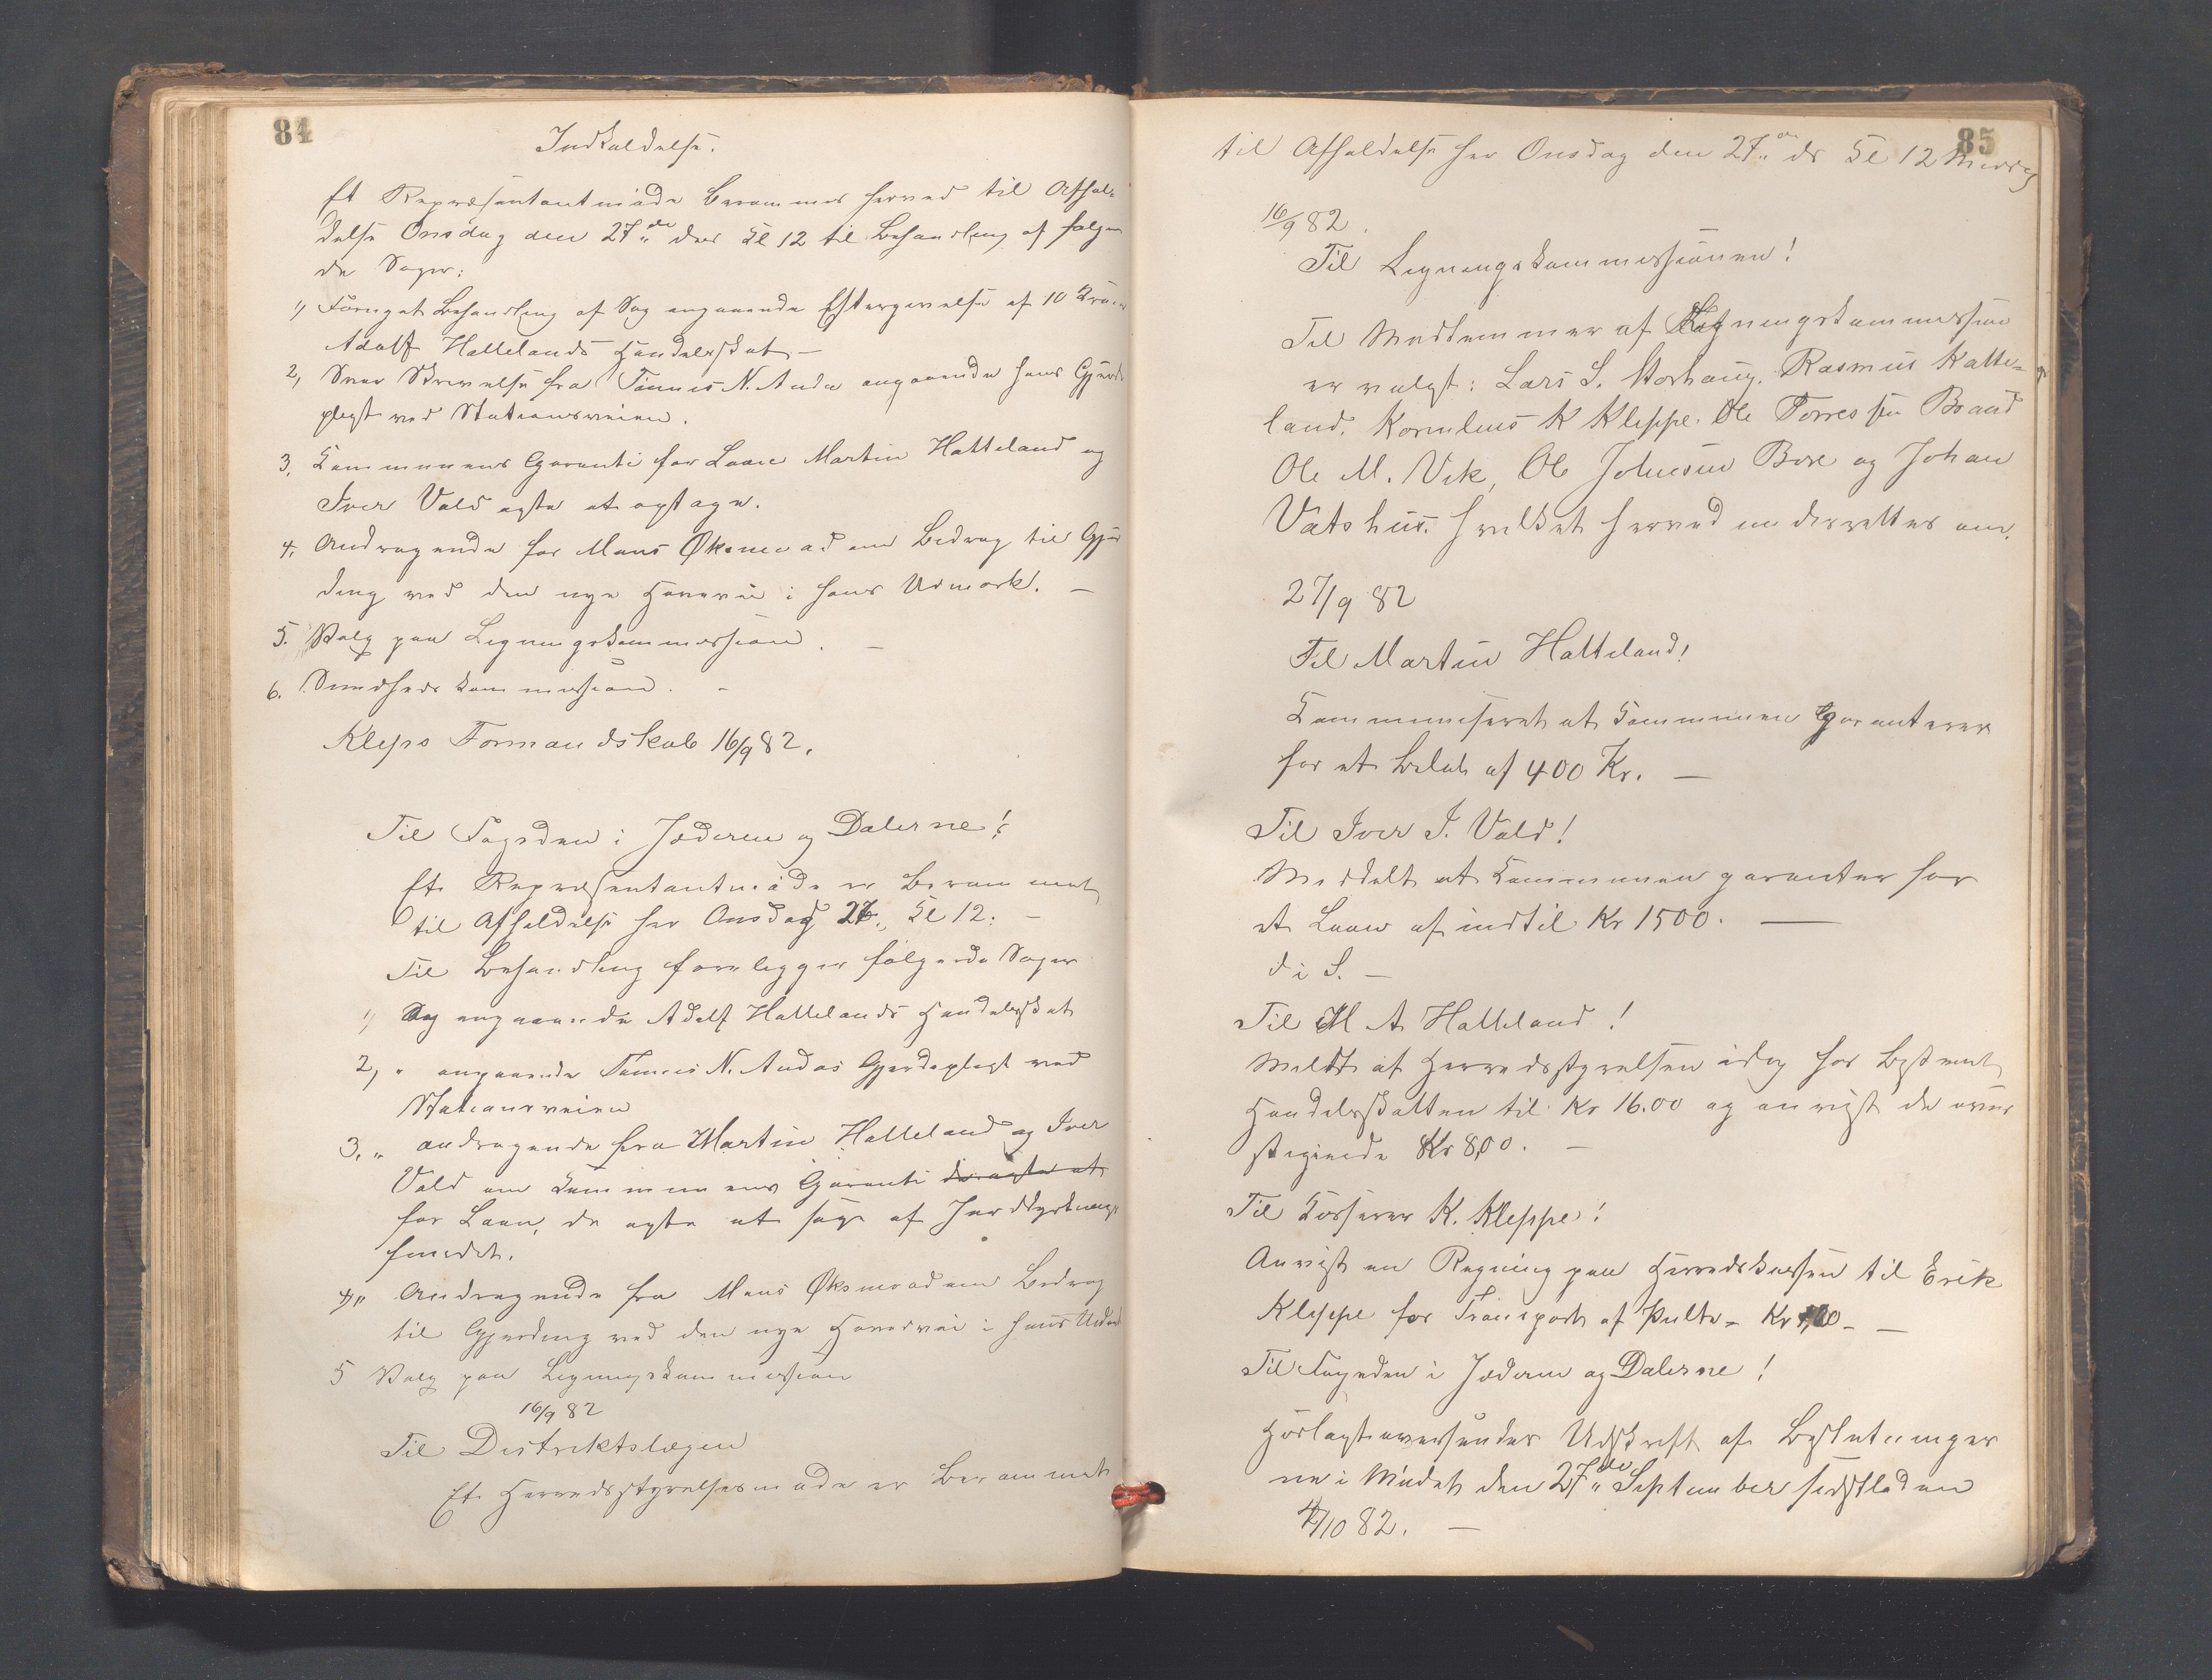 84
Indkaldelse.
Et Repræsentantmøde berammes herved til Afhol-
delse Onsdag den 27de ds Kl 12 til Behandling af følgen
de Sager:
1, Fornyet Behandling af Sag angaaende Eftergivelse af 10 Kroner
Adolf Hattelands Handelsskat –
2, Svar Skrivelse fra Tønnes N. Anda angaaende hans Gjerde
pligt ved Stationsveien.
3, Kommunens Garanti for Laan Martin Hatteland og
Iver Vold agte at optage.
4, Andragende for Mons Øksnevad om Bidrag til Gjer
ding ved den nye Hovevei i hans Udmark. –
5. Valg paa Ligningskommission. –
6. Sundhedskommission. –
Kleps Formandskab 16/9 82.
Til Fogden i Jæderen og Dalerne!
Et Repræsentantmøde er berammet
til Afholdelse her Onsdag 27., Kl 12. –
Til Behandling forelegger følgende Sager
1, Sag angaaende Adolf Hattelands Handelsskat
2, " angaaende Tønnes N. Andas Gjerdepligt ved
Stationsveien
3, " andragende fra Martin Hatteland og Iver
Vold om Kommunens Garanti de agte at
for Laan, de agte at søge af Jorddyrknings
fondet.
4, " Andragende fra Mons Øksnevad om Bidrag
til Gjerding ved den nye Hovevei i hans Udm
5 Valg paa Ligningskommission
16/9 82
Til Distriktslægen
Et Herredsstyrelsesmøde er berammet
85
til Afholdelse her Onsdag den 27de ds Kl 12 Middag
16/9 82.
Til Ligningskommissionen!
Til Medlemmer af Ligningskommission
er valgt: Lars S. Storhaug. Rasmus Hatte-
land. Kornelius K Kleppe. Ole Torressen Braud
Ole M. Vik, Ole Johnesen Bore og Johan
Vatshus. hvilket herved underrettes om.
27/9 82
Til Martin Hatteland!
Kommuniseret at Kommunen Garanterer
for et Beløb af 400 Kr. –
Til Iver I. Vold!
Meddelt at Kommunen garanter for
et Laan af indtil Kr 1500. –
d i S. –
Til M A Hatteland!
Meldt at Herredsstyrelsen idag har bestemt
Handelsskatten til Kr 16.00 og anvist de over
stigende Kr 8,00. –
Til Kasserer K. Kleppe!
Anvist en Regning paa Herredskassen til Erik
Kleppe for Transport af Pulte – Kr
Til Fogeden i Jæderen og Dalerne!
Hoslagt oversendes Udskrift af Beslutninger
ne i Mødet den 27de September sidstleden
4/10 82. –